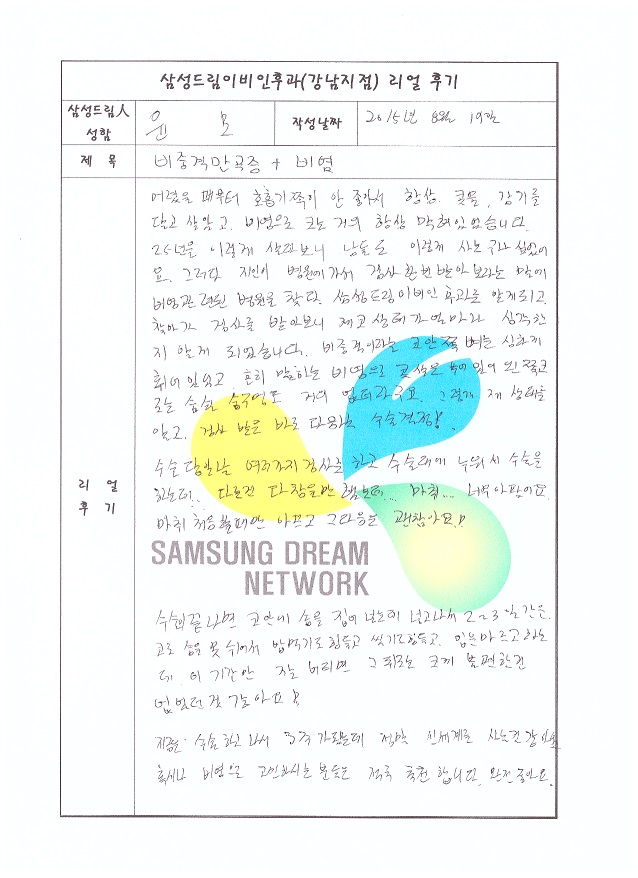 삼성드림이비인후과(강남지점) 리얼 후기
삼성드림人 성함
윤 모
작성날짜
2015년 8월 19일
제 목
비중격만곡증 + 비염
리 얼
후 기
어렸을 때부터 호흡기쪽이 안 좋아서 항상 콧물, 감기를
달고 살았고, 비염으로 코는 거의 항상 막혀있었습니다.
25년을 이렇게 살다보니 남들도 이렇게 사는구나 싶었어
요. 그러다 지인이 병원에가서 검사 한번 받아보라는 말에
비염관련된 병원을 찾다 삼성드림이비인후과를 알게되고,
찾아가 검사를 받아보니 제 코 상태가 얼마나 심각한
지 알게 되었습니다. 비중격이라는 코안쪽 뼈는 심하게
휘어있었고 흔히 말하는 비염으로 콧살은 부어있어 왼쪽코
로는 숨쉴 거의 없더라구요. 그렇게 제 상태를
알고, 검사 받은 바로 다음날 수술결정!
수술당일날 여러가지검사를 하고 수술대에 누워서 수술을
하는데.. 다른건 다 참을만 했는데... 마취... 너무아팠어요
마취 처음할때만 아프고 그다음은 괜찮아요!!
SAMSUNG DREAM
NETWORK
수술끝나면 코안에 솜을 집어넣는데 넣고나서 2~3일간은
코로 숨을 못쉬어서 밥먹기도힘들고 씻기도힘들고, 입은마르고하는
데 이 기간만 잘 버티면 그 뒤로는 크게 불편한건
없었던것 같아요!
지금은 수술하고 나서 정말 신세계로 사는것 같아요
혹시나 비염으로 고민하시는 분들은 적극 추천합니다. 완전좋아요.